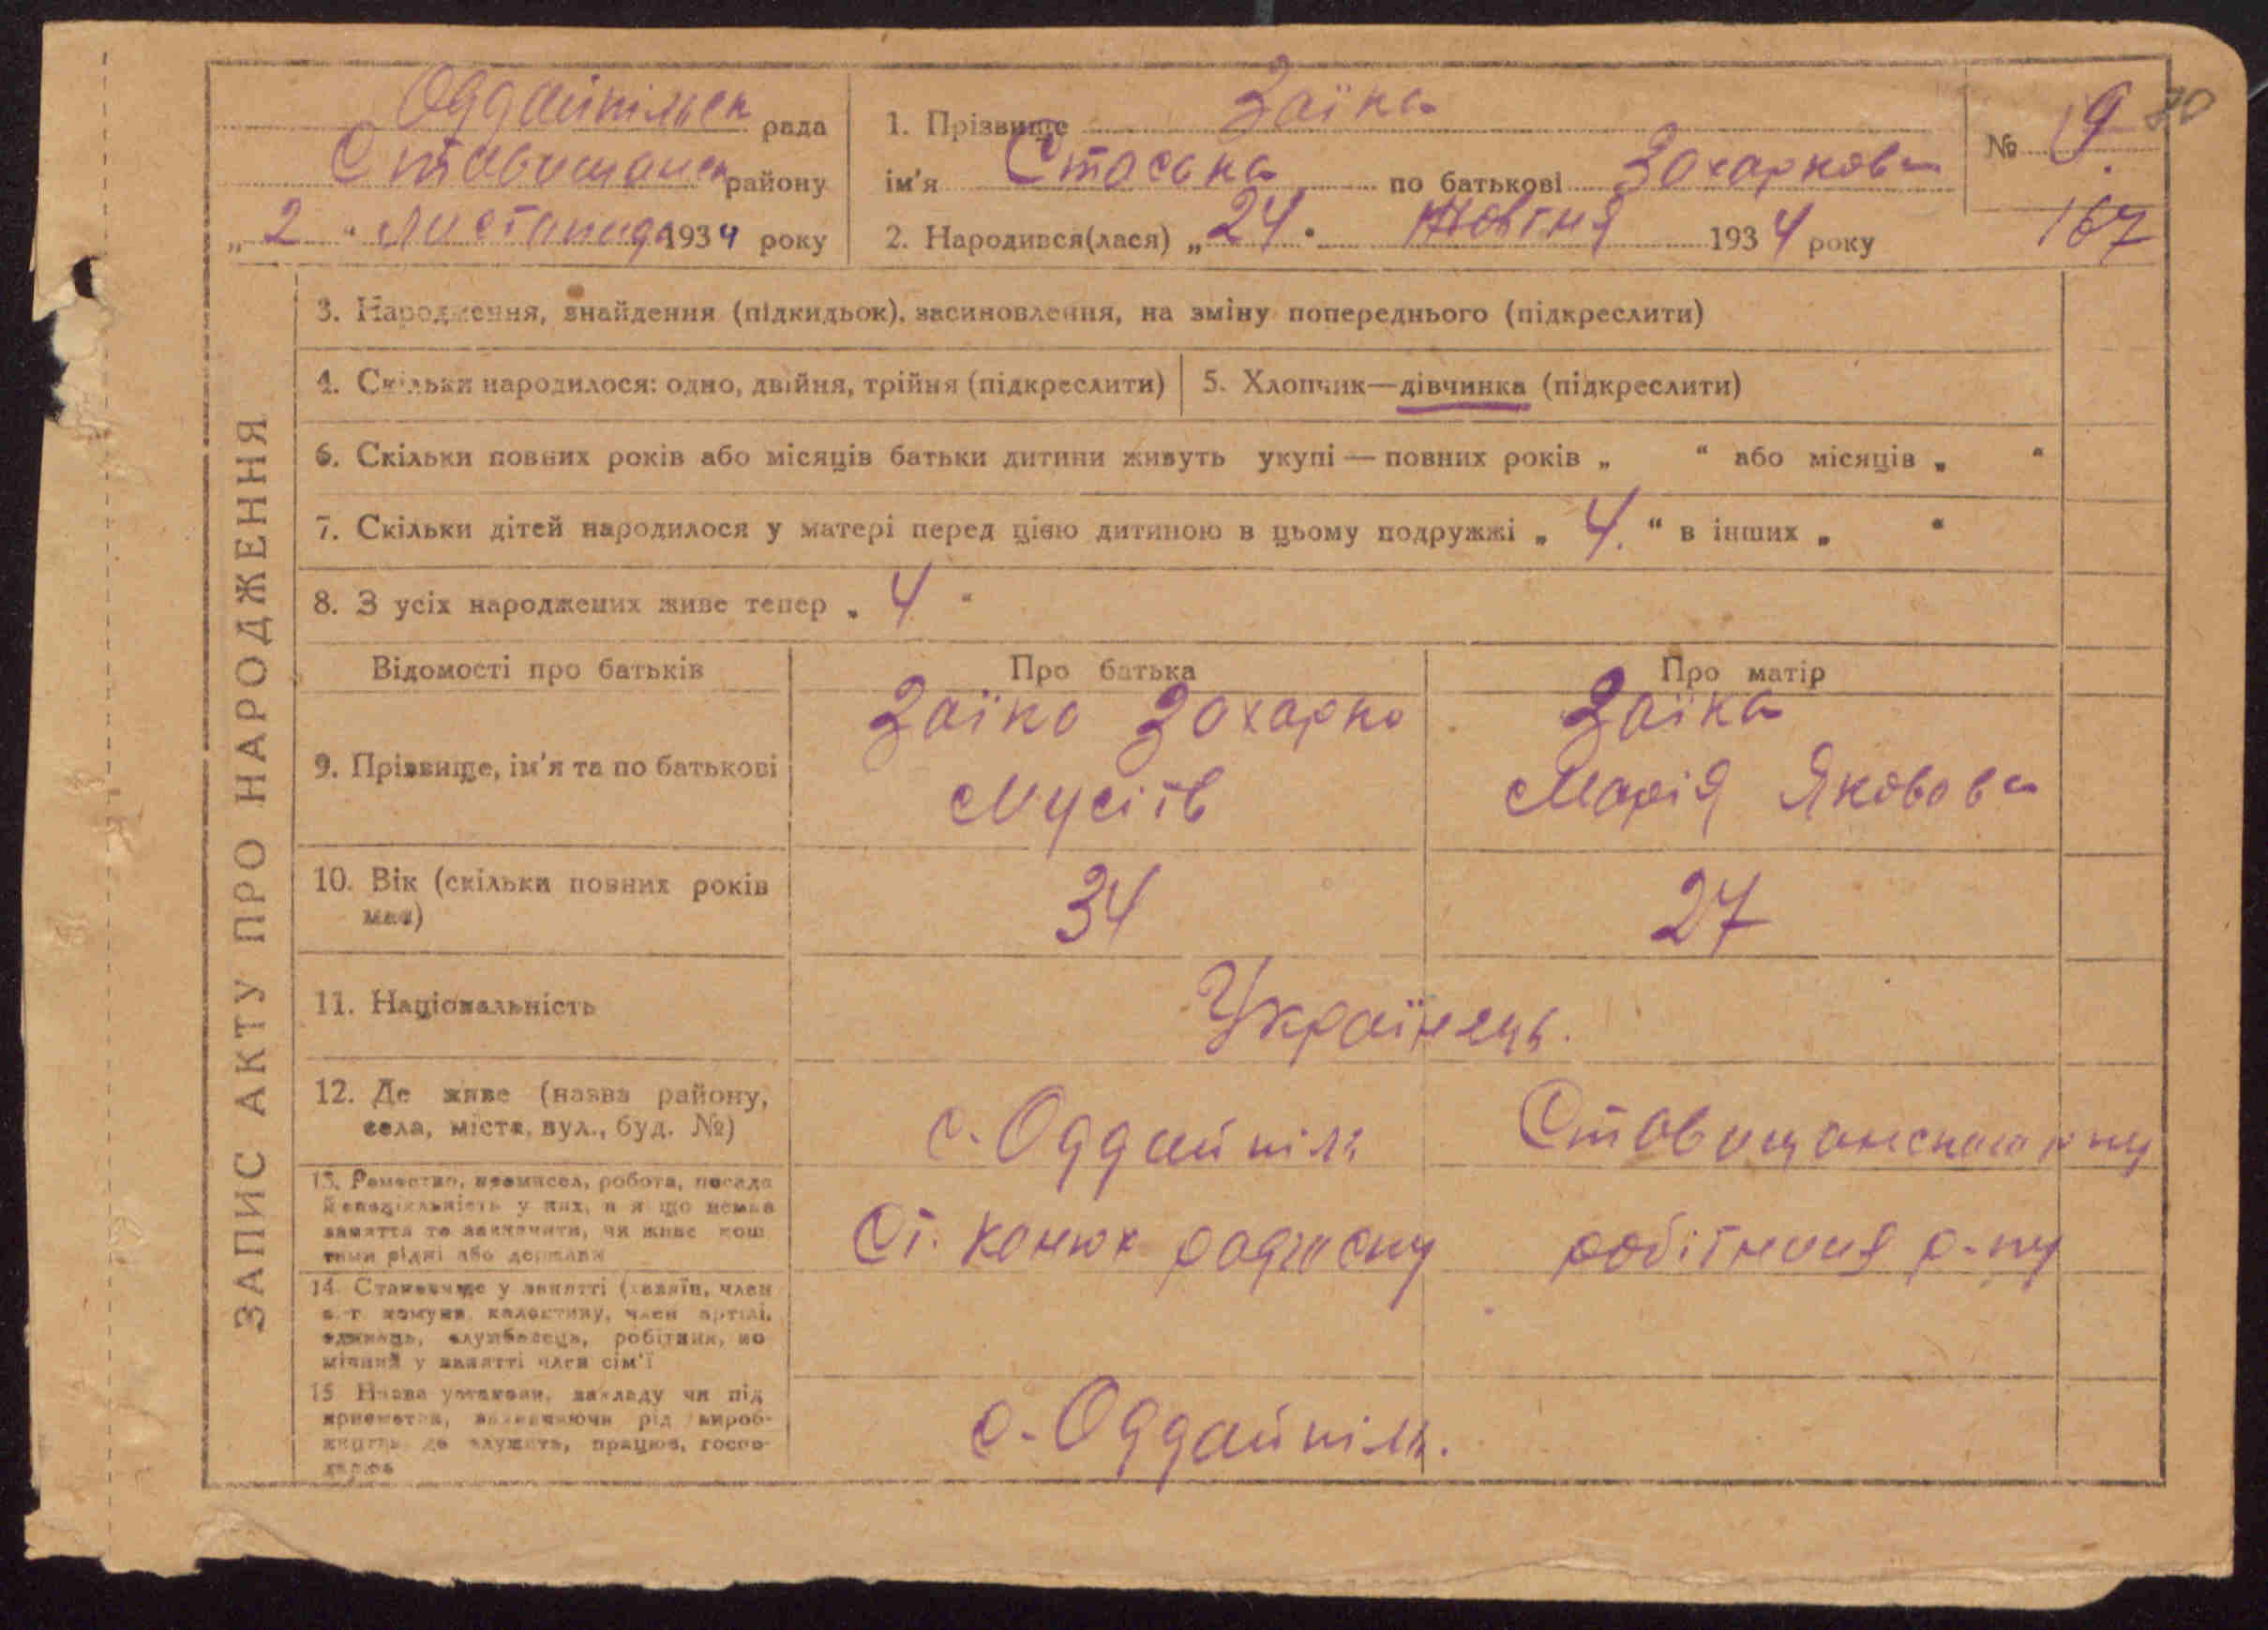 Оддайпільск рада
Ставищанск району
„ 2 " листопада 1934 року
1. Прізвище Заїка
ім'я Стасана по батькові Захарков
2. Народився(лася) „ 24 " Жовтня 1934 року
№ 9.
70
167
ЗАПИС АКТУ ПРО НАРОДЖЕННЯ
3. Народження, знайдення (підкидьок), засиновлення, на зміну попереднього (підкреслити)
4. Скільки народилося: одно, двійня, трійня (підкреслити)
5. Хлопчик—дівчинка (підкреслити)
6. Скільки повних років або місяців батьки дитини живуть укупі — повних років „ " або місяців „ "
7. Скільки дітей народилося у матері перед цією дитиною в цьому подружжі „ 4. " в інших „ "
8. З усіх народжених живе тепер „ 4 "
Відомості про батьків Про батька Про матір
9. Прізвище, ім'я та по батькові
Заїка Захарко
Мусіїв
Заїка
Марія Яковова
10. Вік (скільки повних років
має)
34
27
11. Національність
Українець.
12. Де живе (назва району,
села, міста, вул., буд. №)
с. Оддайпіль
13. Ремество, промисел, робота, посада
й спеціяльність у них, а якщо немає
заняття то зазначити, чи живе кош
тами рідні або держави
Ст. конюх радгоспу
робітниця р-пу
14. Становище у занятті (хазяїн, член
с.-г. комуни, колективу, член артілі,
одинець, службовець, робітник, по
мічний у занятті член сім'ї
15. Назва установи, закладу чи під
приємства, зазначаючи рід вироб-
ництва де служить, працює, госпо-
дарює
с. Оддайпіль.